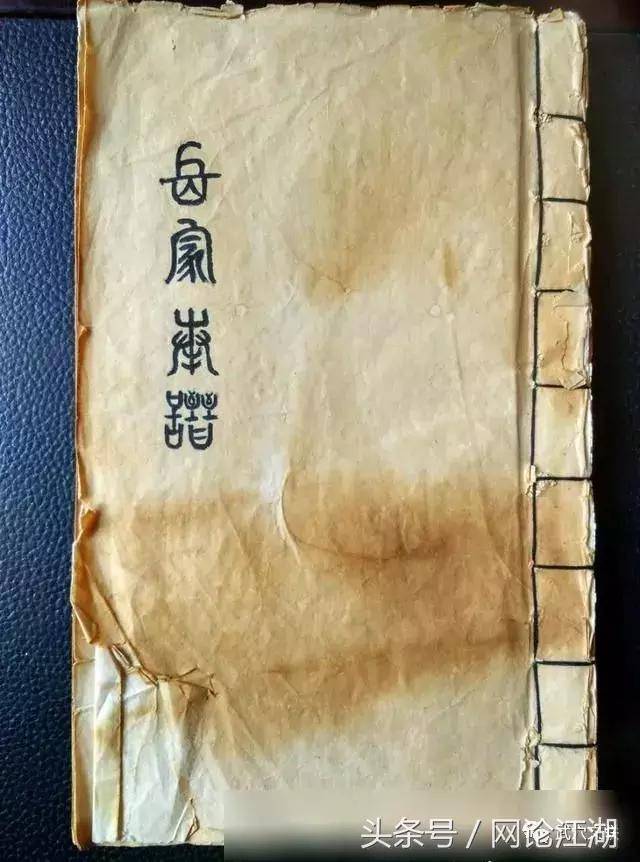 岳家拳譜
头条号 / 网论江湖